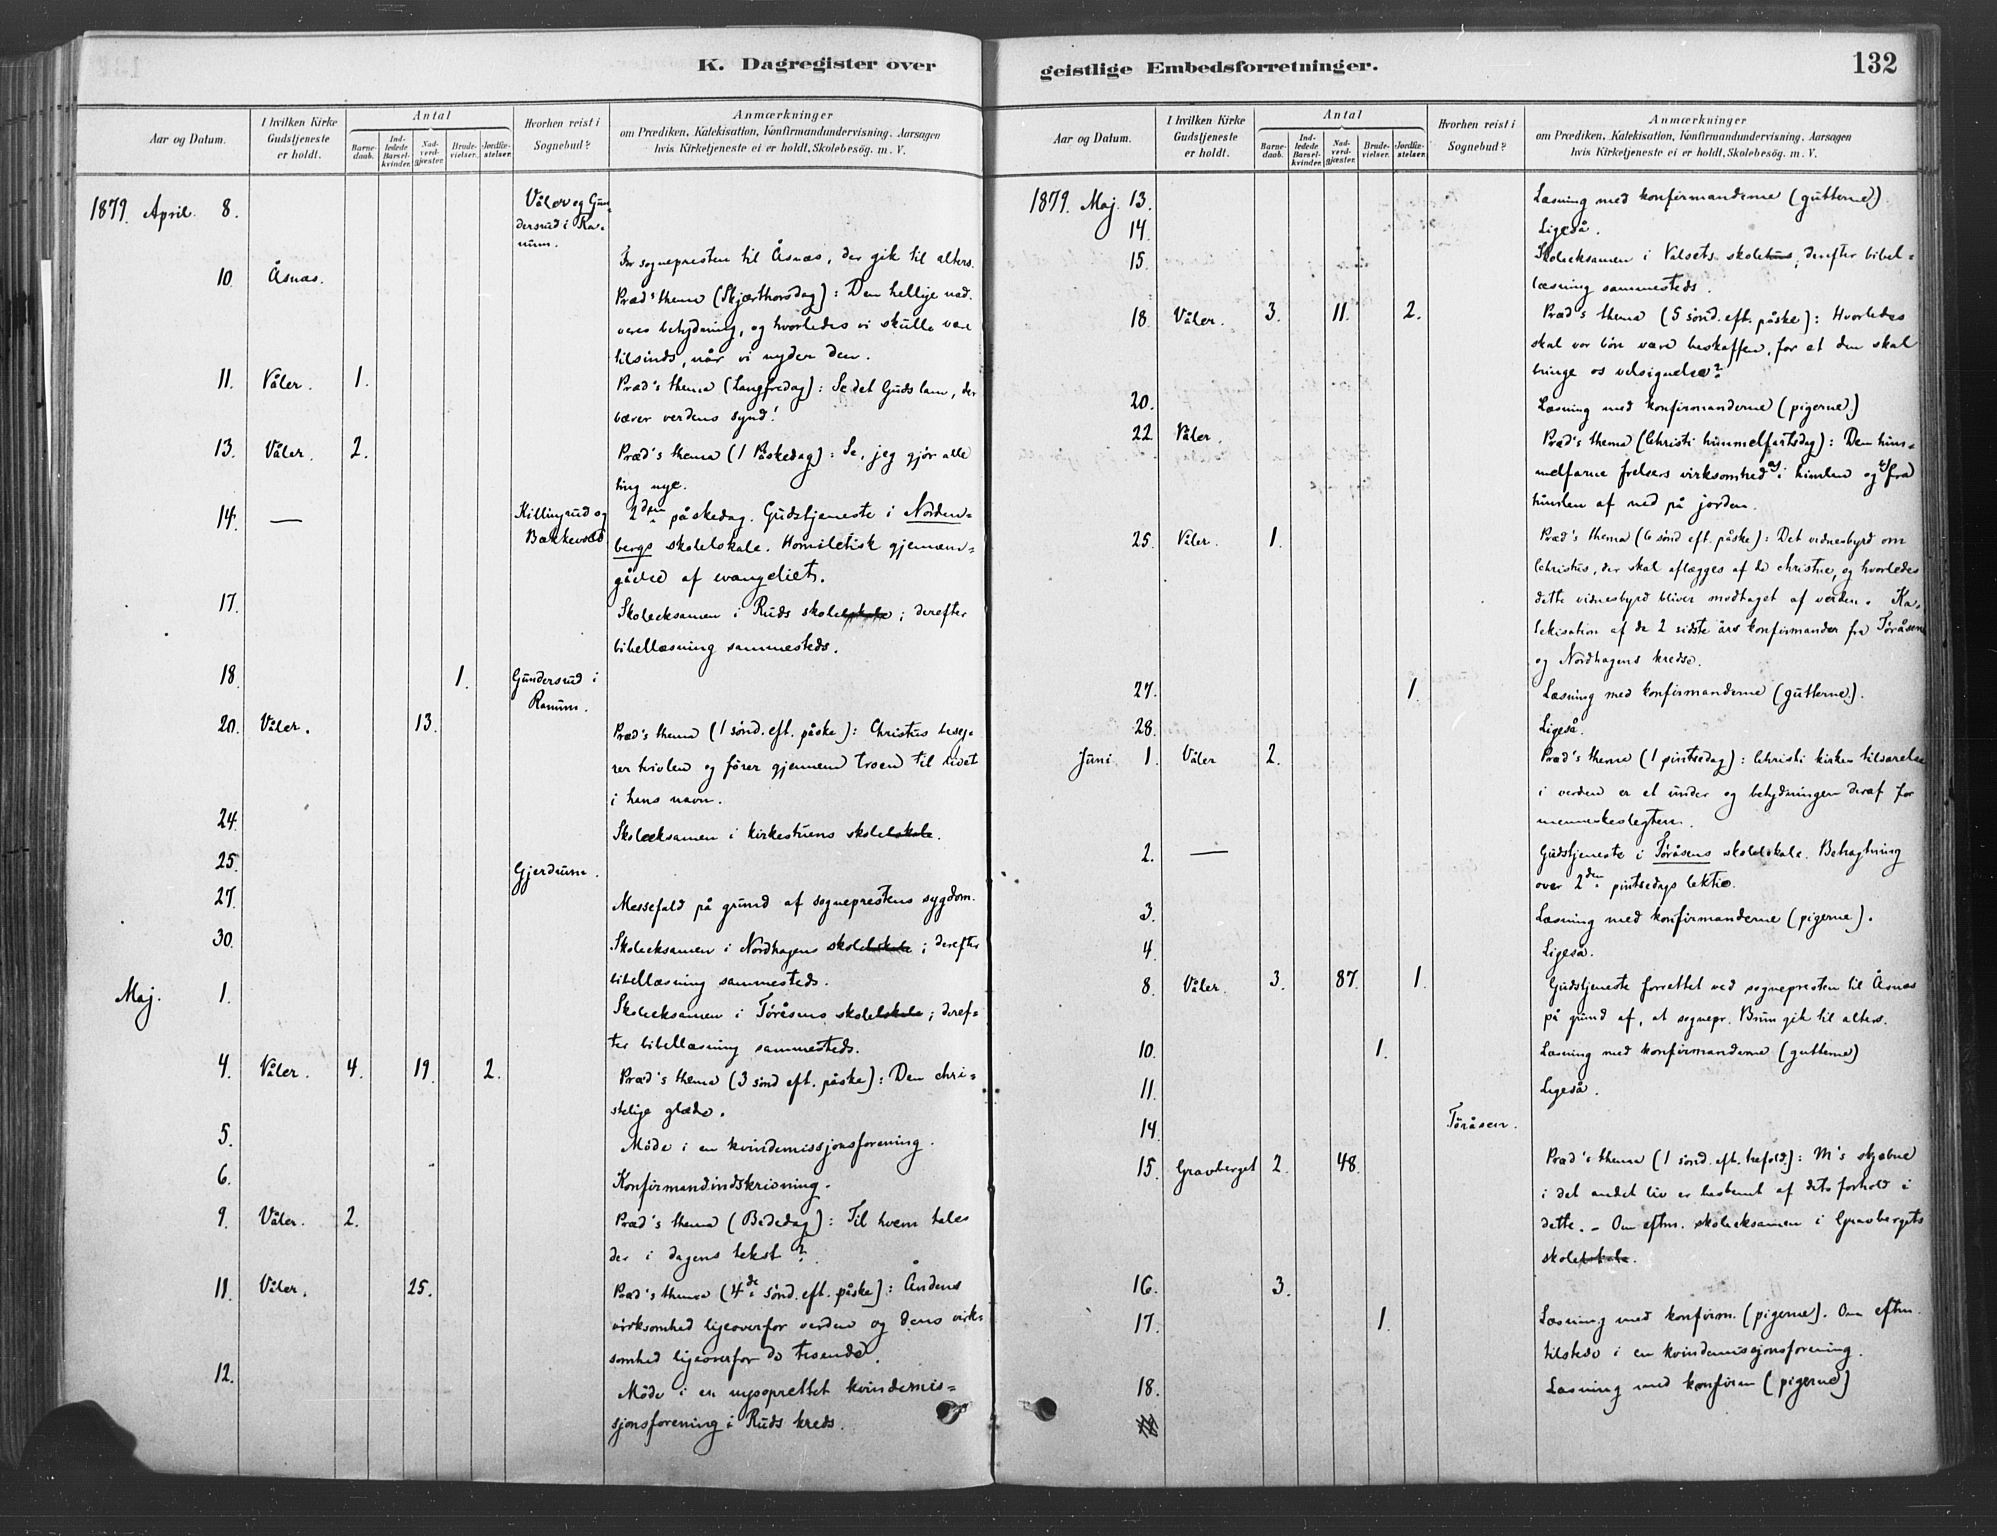 K. Dagregister over
Aar og Datum.
I hvilken Kirke Gudstjeneste er holdt.
Antal
Barnedaab.
Indledede Barselkvinder.
Nadverdgjæster.
Brudevielser.
Jordfæstelser.
Hvorhen reist i Sognebud?
Anmærkninger
om Prædiken, Katekisation, Konfirmandundervisning. Aarsagen
hvis Kirketjeneste ei er holdt, Skolebesøg. m. V.
1879. April. 8. Våler og Gun-
dersrud i Ra-
num.
For sognepresten til Åsnæs, der gik til alters.
10. Åsnæs. Præd's thema (Skjærthorsdag): Den hellige nad-
veres betydning, og hvorledes vi skulle være
tilsinds, når vi nyder den.
11. Våler. 1. Præd's thema (Langfredag): Se det Guds lam, der
bærer verdens synd!
13. Våler. 2. Præd's thema (1 Påskedag): Se, jeg gjør alle
ting nye.
14. — Killingrud og
Bækkevold
2den påskedag. Gudstjeneste i Norden-
bergs skolelokale. Homiletisk gjennem-
gåelse af evangeliet.
17. Skoleeksamen i Ruds skolelokale; derefter
bibellæsning sammesteds.
18. 1. Gundersrud i
Ranum.
20. Våler. 13. Præd's thema (1 sønd. eft. påske): Christus besej-
rer tvivlen og fører gjennem troen til livet
i hans navn.
24. Skoleeksamen i kirkestuens skolelokale.
25. Gjerdrum.
27. Messefald på grund af sogneprestens sygdom.
30. Skoleeksamen i Nordhagens skolelokale; derefter
bibellæsning sammesteds.
Maj. 1. Skoleeksamen i Toråsens skolelokale; deref-
ter bibellæsning sammesteds.
4. Våler. 4. 19. 2. Præd's thema (3 sønd eft. påske): Den chri-
stelige glæde.
5. Møde i en kvindemissjonsforening.
6. Konfirmandindskrivning.
9. Våler. 2. Præd's thema (Bededag): Til hvem tales
der i dagens tekst?
11. Våler. 25. Præd's thema (4de sønd. eft. påske): Åndens
virksomhed ligeoverfor verden og dens virk-
somhed ligeoverfor de troende.
12. Møde i en nysoprettet kvindemis-
sjonsforening i Ruds kreds.
geistlige Embedsforretninger.
132
Aar og Datum.
I hvilken Kirke Gudstjeneste er holdt.
Antal
Barnedaab.
Indledede Barselkvinder.
Nadverdgjæster.
Brudevielser.
Jordfæstelser.
Hvorhen reist i Sognebud?
Anmærkninger
om Prædiken, Katekisation, Konfirmandundervisning. Aarsagen
hvis Kirketjeneste ei er holdt, Skolebesøg. m. V.
1879. Maj. 13. Læsning med konfirmanderne (gutterne).
14. Ligeså.
15. Skoleeksamen i Valsets skolehus, derefter bibel-
læsning sammesteds.
18. Våler. 3. 11. 2. Præd's thema (5 sønd. eft. påske): Hvorledes
skal vor bøn være beskaffen, for at den skal
bringe os velsignelse?
20. Læsning med konfirmanderne (pigerne.)
22. Våler. Præd's thema (Christi himmelfartsdag): Den him-
melfarne frelsers virksomhed i himlen og fra
himlen af ned på jorden.
25. Våler. 1. Præd's thema (6 sønd eft. påske): Det vidnesbyrd om
Christus, der skal aflægges af de christne, og hvorledes
dette vidnesbyrd bliver modtaget af verden. Ka-
tekisation af de 2 sidste års konfirmander fra Toråsens
og Nordhagens kredse.
27. 1. Læsning med konfirmanderne (gutterne).
28. Ligeså.
Juni 1. Våler 2. Præd's thema (1 pintsedag): Christi kirkes tilværelse
i verden er et under og betydningen deraf for
menneskeslegten.
2. — Gudstjeneste i Toråsens skolelokale. Betragtning
over 2den pintsedags lektie.
3. Læsning med konfirmanderne (pigerne).
4. Ligeså.
8. Våler. 3. 87. 1. Gudstjeneste forrettet ved sognepresten til Åsnæs
på grund af, at sognepr. Brun gik til alters.
10. 1. Læsning med konfirmanderne (gutterne)
11. Ligeså.
14. Toråsen.
15. Gravberget 2. 48. Præd's thema (1 sønd. eft. trefold.): M's skjæbne
i det andet liv er bestemt af dets forhold i
dette. – Om eftm. skoleeksamen i Gravbergets
skolelokale.
16. 3.
17. 1. Læsning med konfirm. (pigerne). Om eftm.
tilstede i en kvindemissjonsforening.
18. Læsning med konfirm (pigerne)